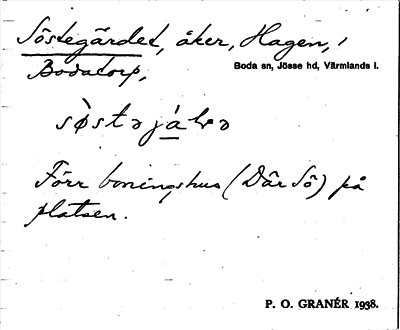 Söstegärdet, åker, Hagen, 1
Bodatorp,
Boda sn, Jösse hd, Värmlands l.
Förr boningshus (Där Sö) på
platsen.
P. O. GRANÉR 1938.